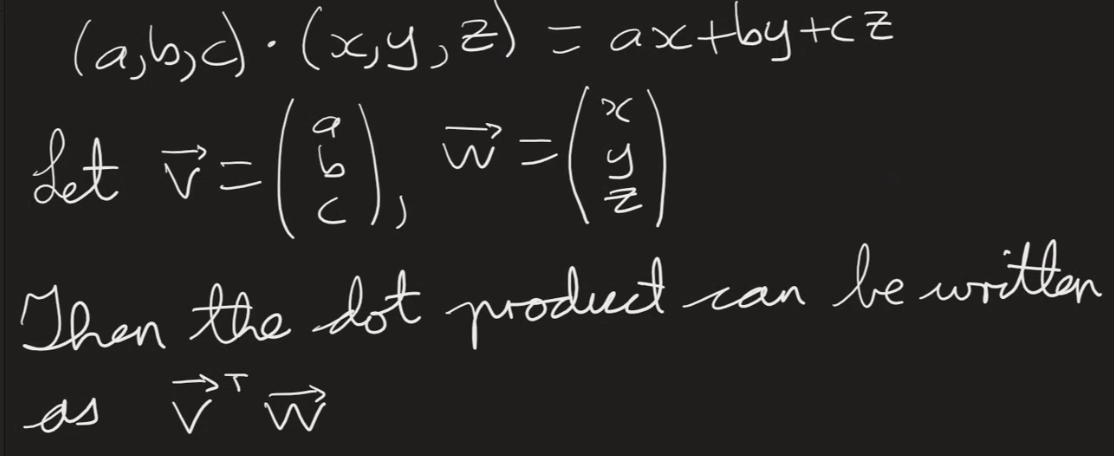 (a,b,c) · (x,y,z) = ax+by+cz
Let v⃗ = (a b c), w⃗ = (x y z)
Then the dot product can be written
as v⃗ᵀ w⃗